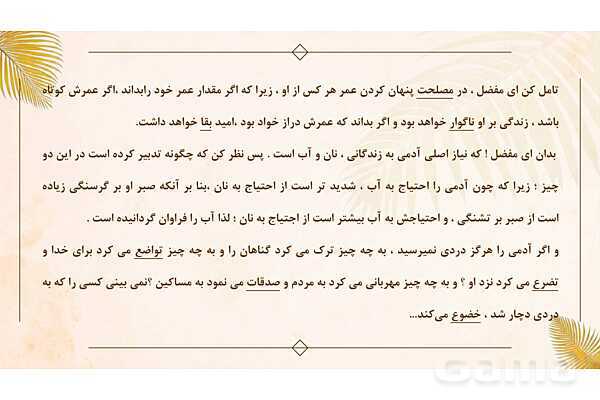 تامل کن ای مفضل ، در مصلحت پنهان کردن عمر هر کس از او ، زیرا که اگر مقدار عمر خود رابداند ،اگر عمرش کوتاه
باشد ، زندگی بر او ناگوار خواهد بود و اگر بداند که عمرش دراز خواد بود ،امید بقا خواهد داشت.
بدان ای مفضل ! که نیاز اصلی آدمی به زندگانی ، نان و آب است . پس نظر کن که چگونه تدبیر کرده است در این دو
چیز ؛ زیرا که چون آدمی را احتیاج به آب ، شدید تر است از احتیاج به نان ،بنا بر آنکه صبر او بر گرسنگی زیاده
است از صبر بر تشنگی ، و احتیاجش به آب بیشتر است از اجتیاج به نان ؛ لذا آب را فراوان گردانیده است .
و اگر آدمی را هرگز دردی نمیرسید ، به چه چیز ترک می کرد گناهان را و به چه چیز تواضع می کرد برای خدا و
تضرع می کرد نزد او ؟ و به چه چیز مهربانی می کرد به مردم و صدقات می نمود به مساکین ؟نمی بینی کسی را که به
دردی دچار شد ، خضوع می‌کند...
Gama